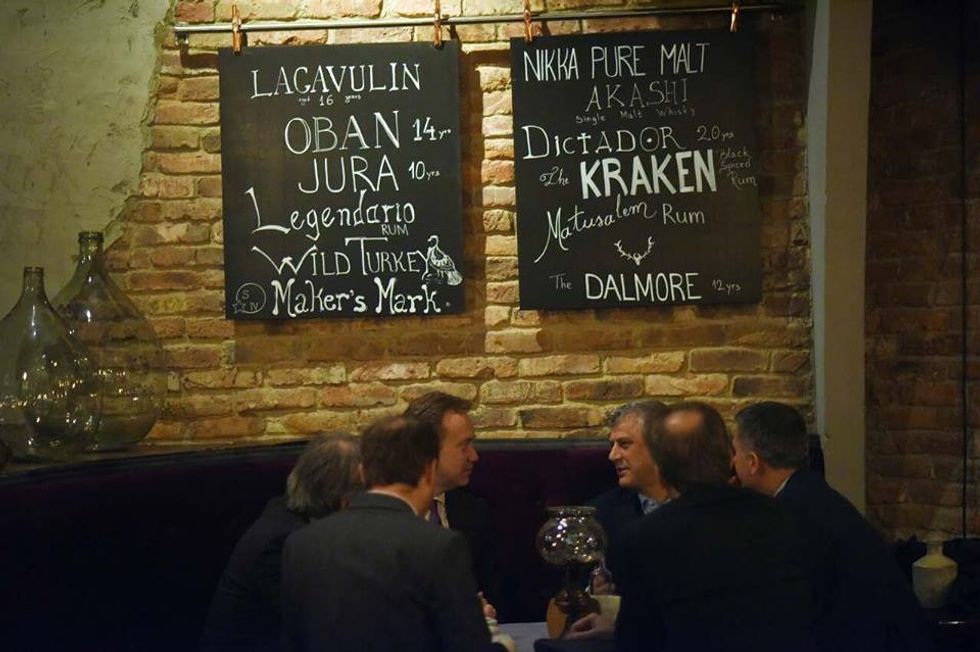 LAGAVULIN
aged 16 years
OBAN 14 yr.
JURA 10 yrs
Legendario
RUM
WILD TURKEY
MAKER'S MARK
NIKKA PURE MALT
AKASHI
Single Malt Whisky
DICTADOR 20 yrs
The KRAKEN Black Spiced Rum
Matusalem Rum
The DALMORE 12 yrs